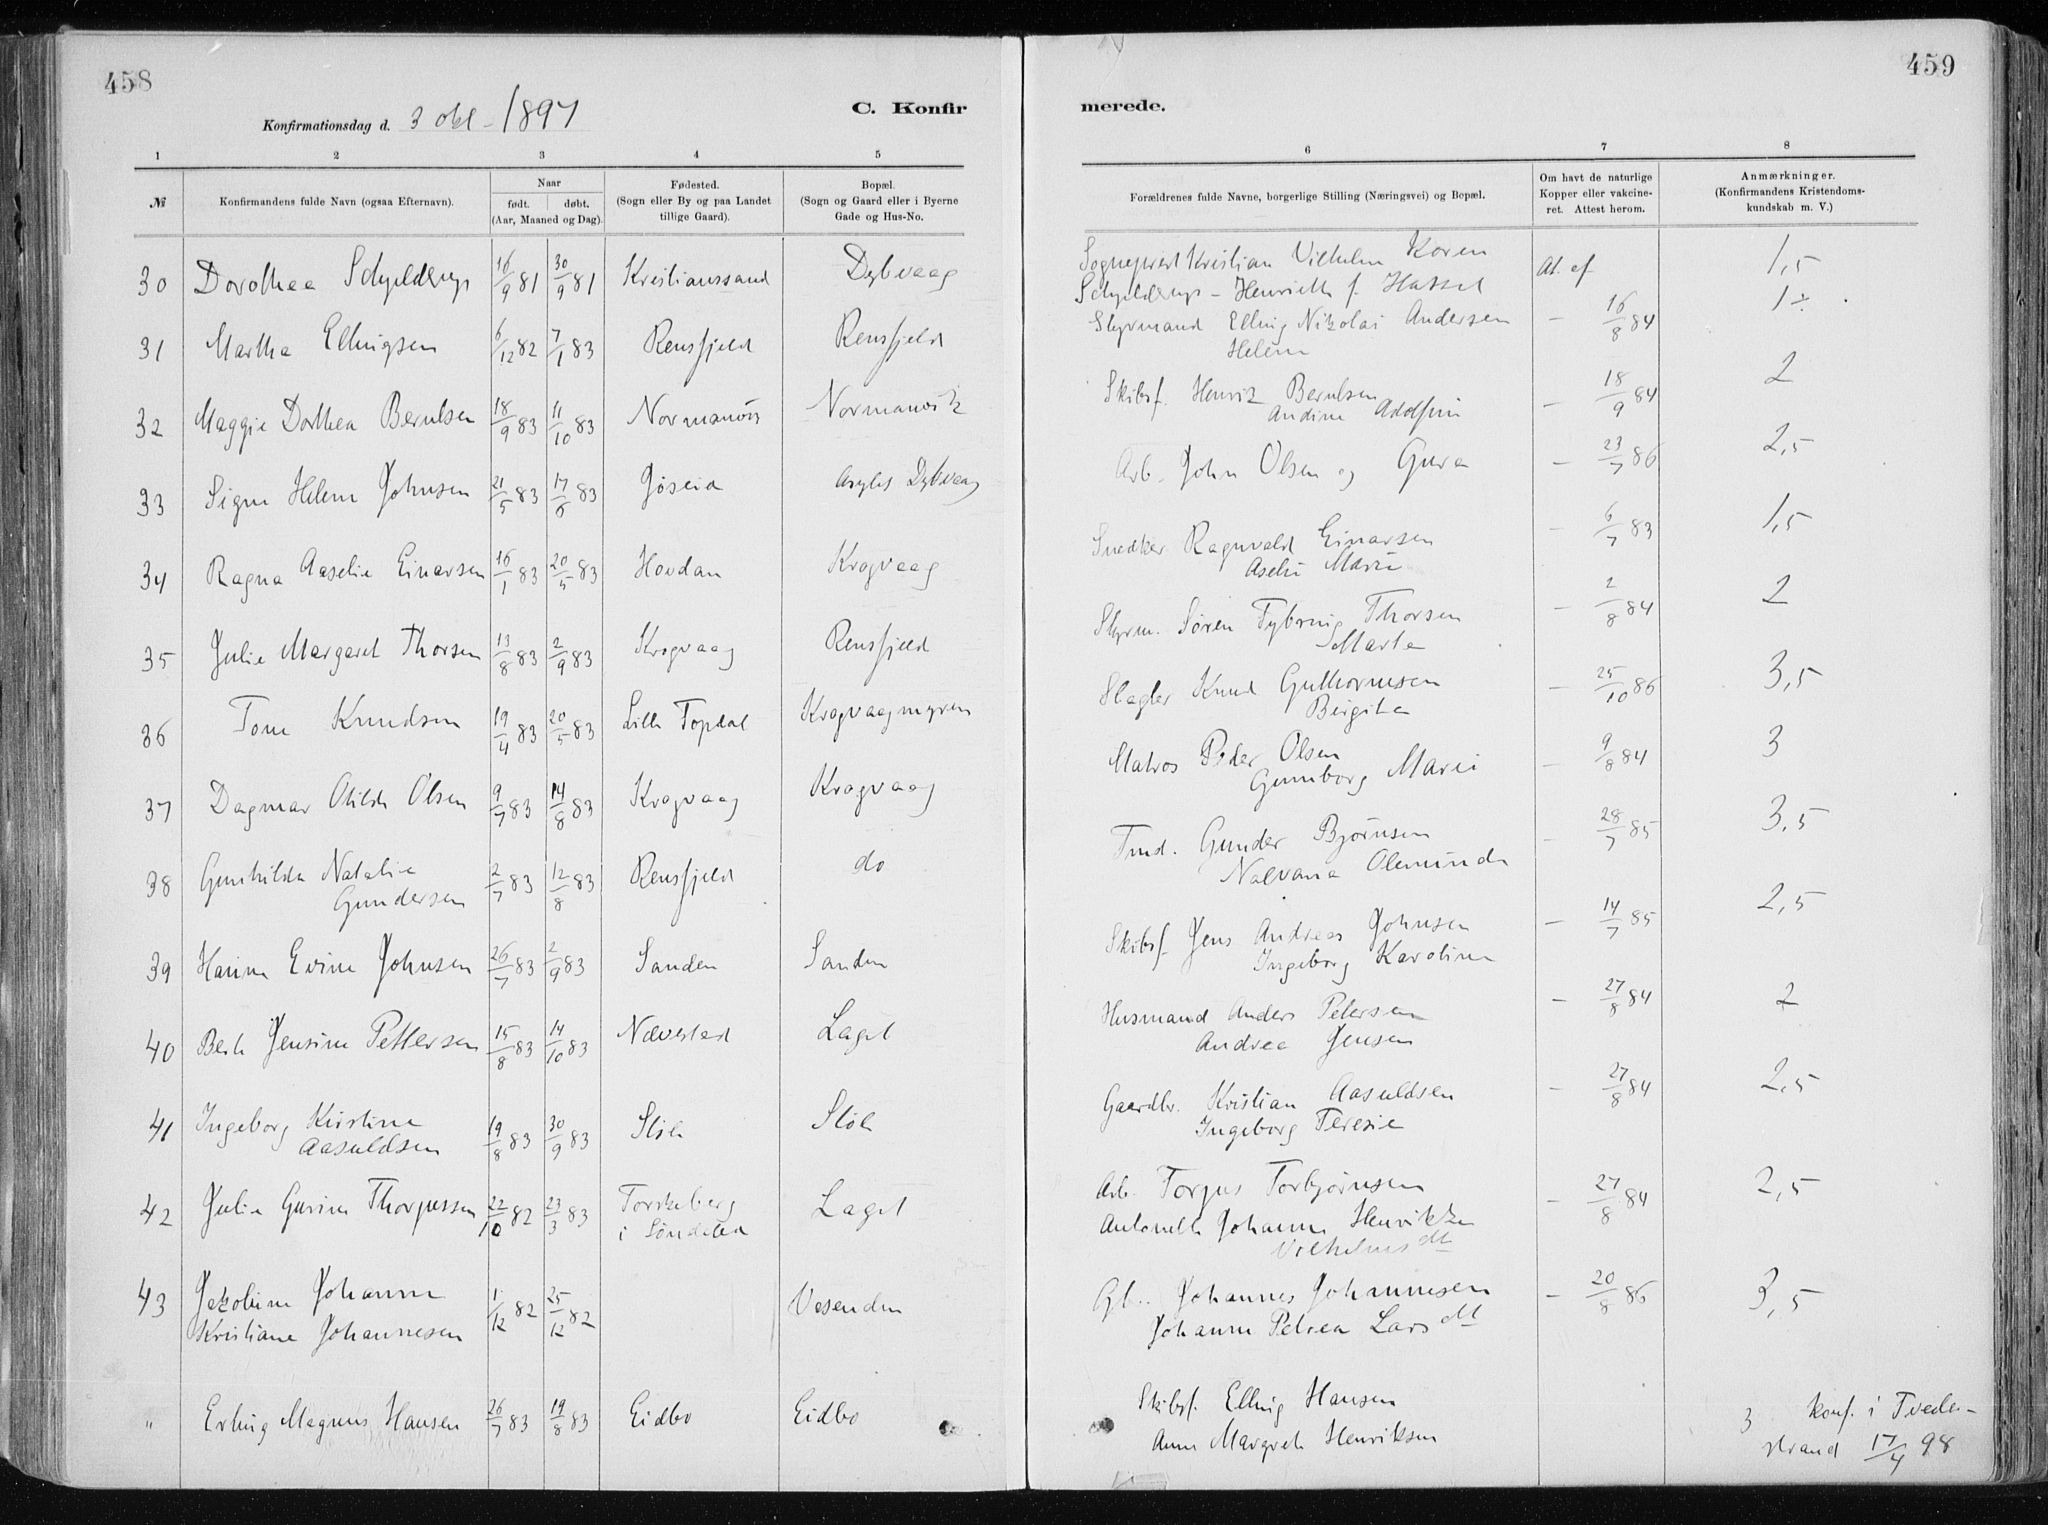 458
Konfirmationsdag d. 3 okt - 1897
C. Konfir
1 2 3 4 5
№
Konfirmandens fulde Navn (ogsaa Efternavn).
Naar
født. døbt.
(Aar, Maaned og Dag).
Fødested.
(Sogn eller By og paa Landet
tillige Gaard).
Bopæl.
(Sogn og Gaard eller i Byerne
Gade og Hus-No.
30 Dorothea Schjelderup 16/9 81 30/9 81 Kristianssand Dybvaag
31 Martha Ellingsen 6/12 82 7/1 83 Rensfjeld Rensfjeld
32 Maggie Dorthea Berntsen 18/9 83 11/10 83 Normanvik Normanvik
33 Signe Helene Johnsen 21/5 83 17/6 83 Gjøseid Asylet Dybvaag
34 Ragna Aaselie Einarsen 16/1 83 20/5 83 Hovdan Krogvaag
35 Julie Margaret Thorsen 13/8 83 2/9 83 Krogvaag Rensfjeld
36 Tone Knudsen 19/4 83 20/5 83 Lille Topdal Krogvaagmyren
37 Dagmar Otilde Olsen 9/7 83 14/8 83 Krogvaag Krogvaag
38 Gunhilda Natalie
Gundersen 2/7 83 12/8 83 Rensfjeld do
39 Hanne Evine Johnsen 26/7 83 2/9 83 Sanden Sanden
40 Berte Jensine Pettersen 15/8 83 14/10 83 Nævestad Laget
41 Ingeborg Kirstine
Aasuldsen 19/8 83 30/9 83 Sløle Sløle
42 Julie Gurine Thorjussen 22/10 82 23/3 83 Torskeberg
i Søndeled Laget
43 Jakobine Johanne
Kristiane Johannesen 1/12 82 25/12 82 Vesenden
" Erling Magnus Hansen 26/7 83 19/8 83 Eidbo Eidbo
459
merede.
6 7 8
Forældrenes fulde Navne, borgerlige Stilling (Næringsvei) og Bopæl.
Om havt de naturlige
Kopper eller vakcine-
ret. Attest herom.
Anmærkninger.
(Konfirmandens Kristendoms-
kundskab m. V.)
Sogneprest Kristian Vilhelm Koren At. af 1,5
Schjelderup - Henriette f. Hassel
Styrmand Elling Nikolai Andersen - 16/8 84 1÷
Helene
Skibsf. Henrik Berntsen - 18/9 84 2
Andine Adolfine
Arb. John Olsen og Guro - 23/7 86 2,5
Snedker Ragnvald Einarsen - 6/7 83 1,5
Aselie Marie
Styrm. Søren Fybring Thorsen - 2/8 84 2
Marte
Slagter Knud Guthormsen - 25/10 86 3,5
Birgite
Matros Peder Olsen - 9/8 84 3
Gunborg Marie
Tmd. Gunder Bjørnsen - 28/7 85 3,5
Nalvana Olemunda
Skibsf. Jens Andreas Johnsen - 14/7 85 2,5
Ingeborg Karoline
Husmand Anders Petersen - 27/8 84 2
Andrea Jensen
Gaardbr. Kristian Aasuldsen - 27/8 84 2,5
Ingeborg Teresie
Arb. Torjus Torbjørnsen - 27/8 84 2,5
Antonette Johanne Henrikke
Vilhelmsdtt
Gb. Johannes Johannesen - 20/8 86 3,5
Johanne Petrea Larsdtt
Skibsf. Elling Hansen
Anne Margrete Henriksen
3 konf. i Tvede-
strand 17/4 98